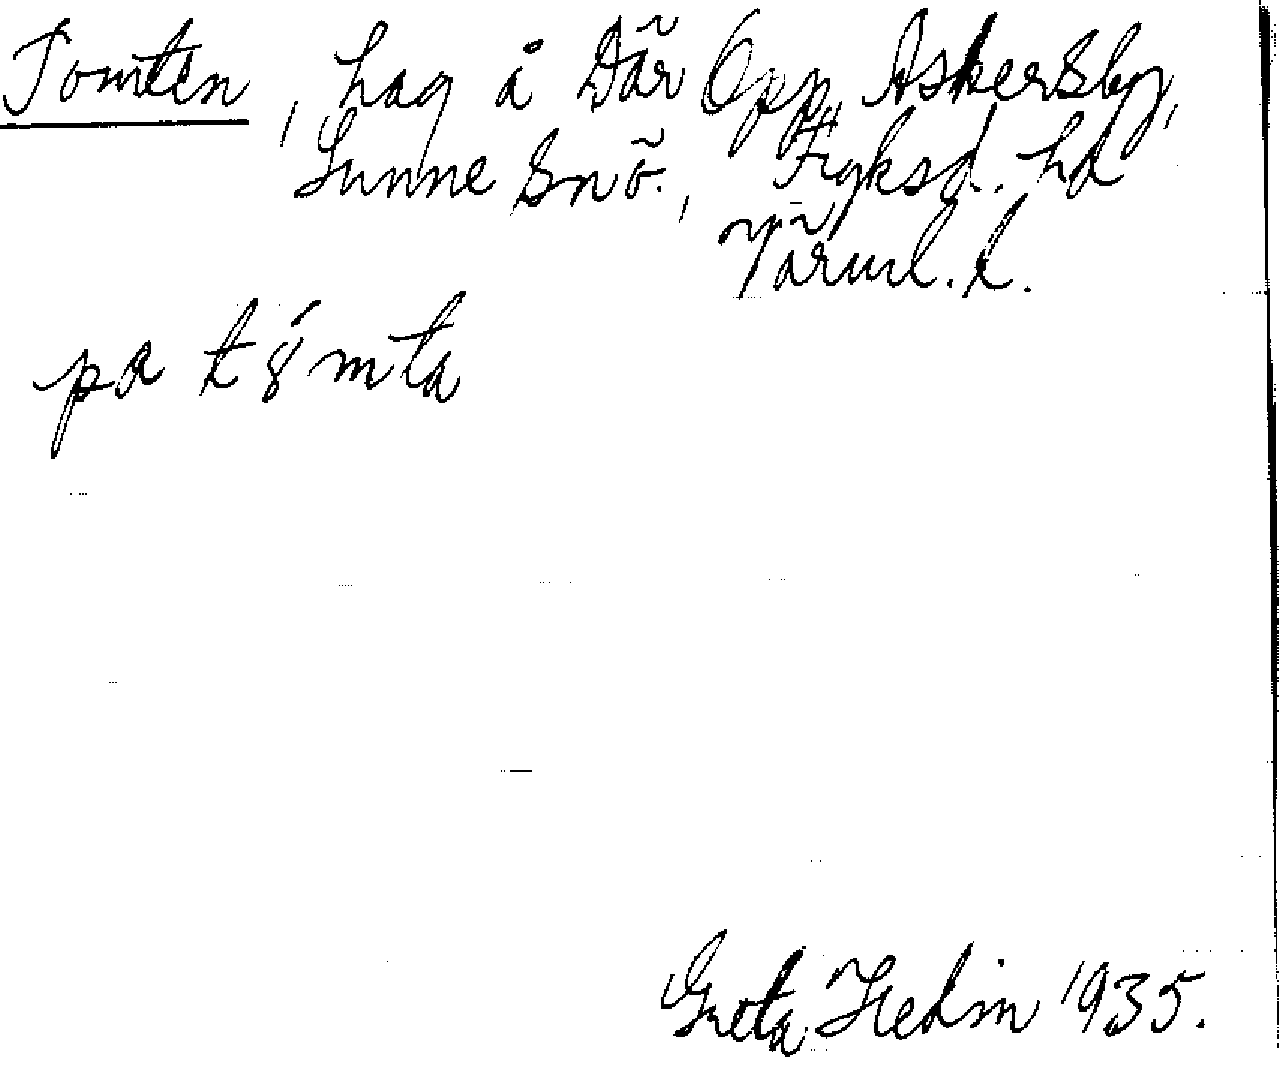 Tomten, hag å Där Opp, Askersby,
Sunne Snö., Fryksd. hd
Värml. l.
pa t8́mta
Greta Hedin 1935.